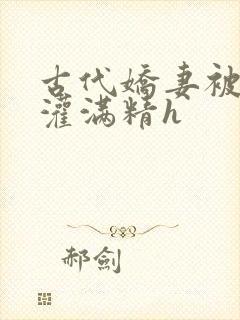 古代嬌妻被
灌滿精h
郝劍